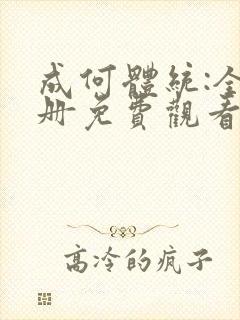 成何體統:全
册免費觀看
高冷的疯子